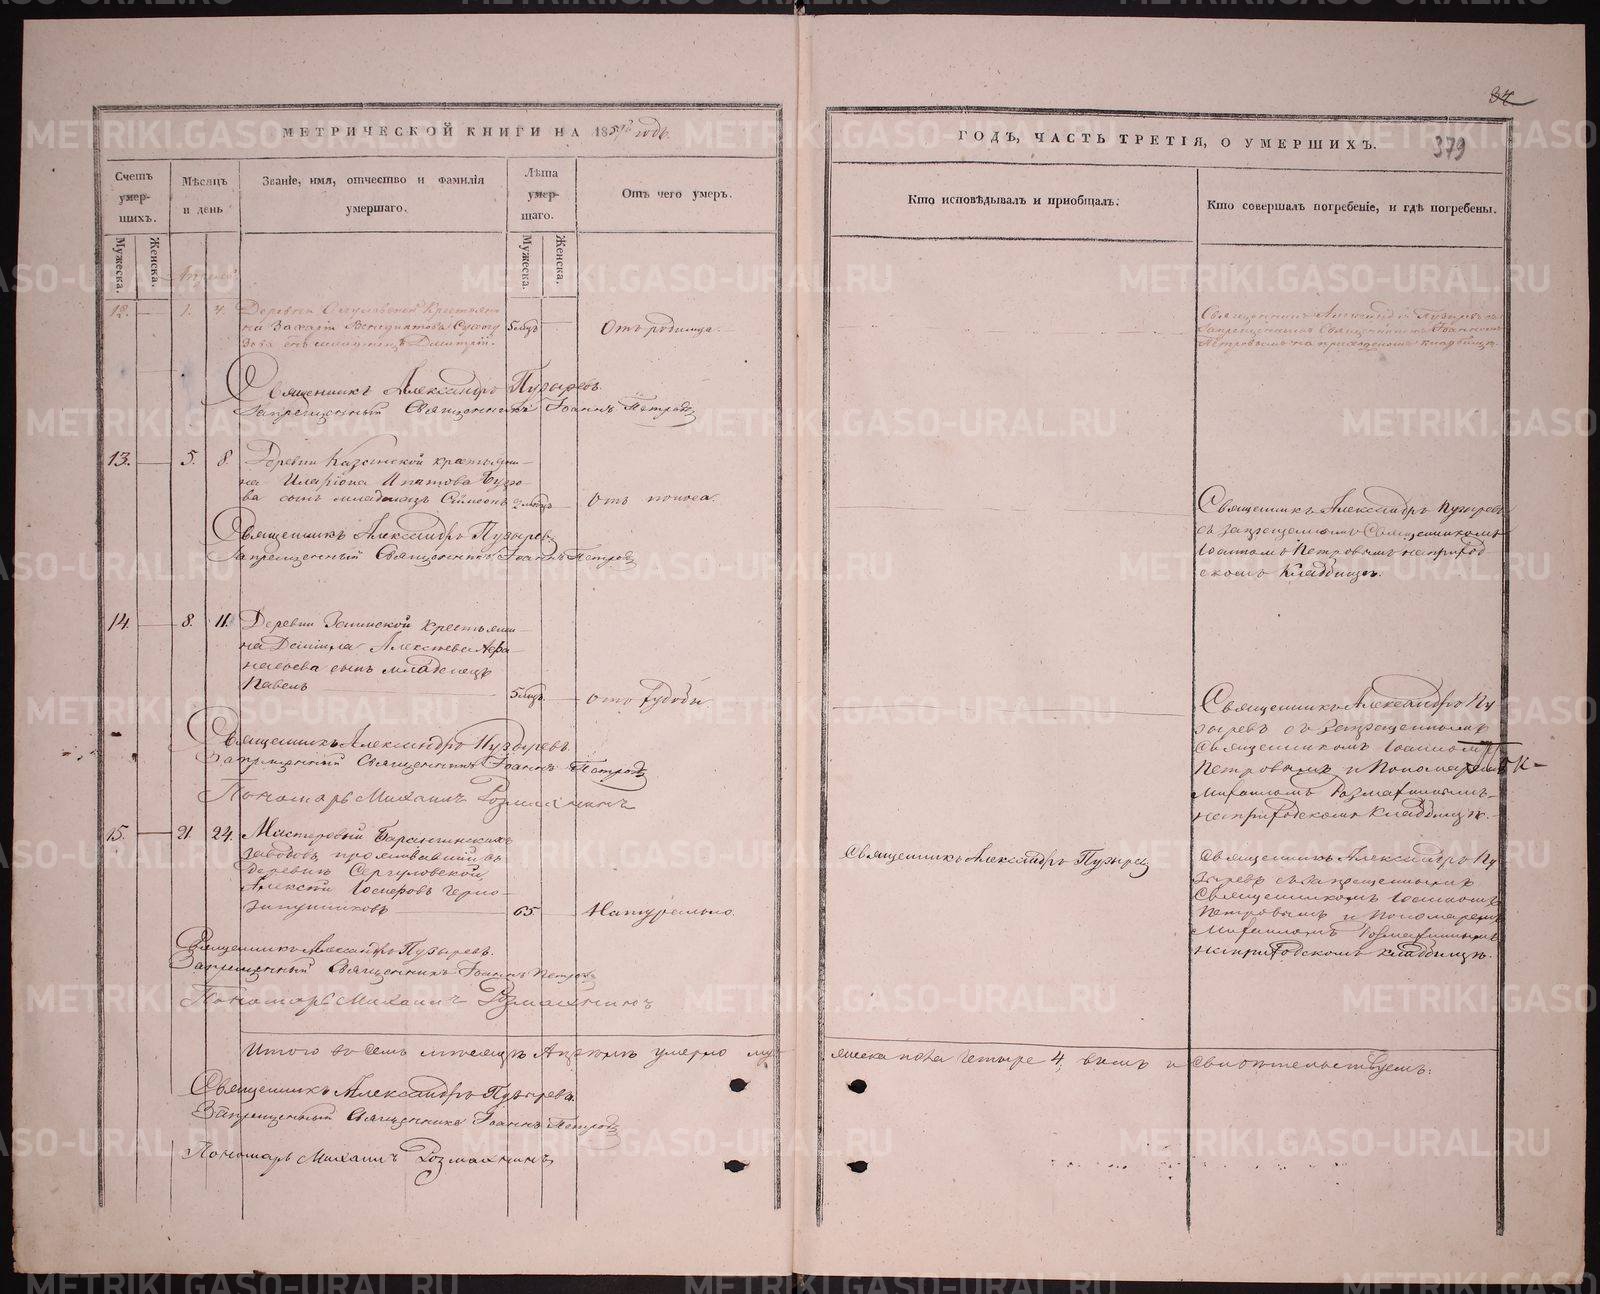 МЕТРИЧЕСКОЙ КНИГИ НА 1859й годъ.
Счетъ умер-шихъ.
Мужеска.
Женска.
Мѣсяцъ и день
Званіе, имя, отчество и фамилія умершаго.
Лѣта умер-шаго.
Мужеска.
Женска.
Отъ чего умеръ.
12. 1. 4.
сынъ младенецъ Дмитрій.
5 мѣц
Отъ родимца.
Священникъ Александръ Пузыревъ.
Запрещенный Священникъ Іоаннъ Петровъ
13. 5. 8. Деревни Казанской крестьяни-
на Иларіона Ипатова
ва сынъ младенецъ Симеонъ 2 мѣц Отъ поноса.
Священникъ Александръ Пузыревъ
Запрещенный Священникъ Іоаннъ Петровъ
14. 8. 11. Деревни крестьяни-
на Даніила Алексѣева Афа-
насьева сынъ младенецъ
Павелъ 5 мѣц.
Священникъ Александръ Пузыревъ.
Запрещенный Священникъ Іоаннъ Петровъ
Пономарь Михаилъ Розмахнинъ
15. 21. 24. Мастеровый Баранчинскихъ
заводовъ проживавшій въ
деревнѣ
Алексѣй
65 Натурально.
Священникъ Александръ Пузыревъ.
Запрещенный Священникъ Іоаннъ Петровъ
Пономарь Михаилъ Розмахнинъ
Итого во семъ мѣсяцѣ Апрѣлѣ умерло му-
Священникъ Александръ Пузыревъ.
Запрещенный Священникъ Іоаннъ Петровъ
Пономарь Михаилъ Розмахнинъ
84
ГОДЪ, ЧАСТЬ ТРЕТІЯ, О УМЕРШИХЪ.
379
Кто исповѣдывалъ и пріобщалъ.
Кто совершалъ погребеніе, и гдѣ погребены.
Священникъ Александръ Пузыревъ съ
Запрещеннымъ Священникомъ Іоанномъ
Петровымъ на приходскомъ кладбищѣ.
Священникъ Александръ Пузыревъ
съ запрещеннымъ Священникомъ
Іоанномъ Петровымъ на приход
скомъ кладбищѣ.
Священникъ Александръ Пу
зыревъ съ запрещеннымъ
Священникомъ Іоанномъ
Петровымъ и Пономаремъ
Михаиломъ Розмахнинымъ
на приходскомъ кладбищѣ.
Священникъ Александръ Пузыревъ
Священникъ Александръ Пу
зыревъ съ запрещеннымъ
Священникомъ Іоанномъ
Петровымъ и Пономаремъ
Михаиломъ Розмахнинымъ
на приходскомъ кладбищѣ.
жеска пола четыре 4, въ чемъ и свидѣтельствуемъ:
METRIKI.GASO-URAL.RU